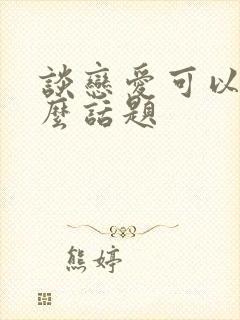 談戀愛可以
麼話題
熊婷